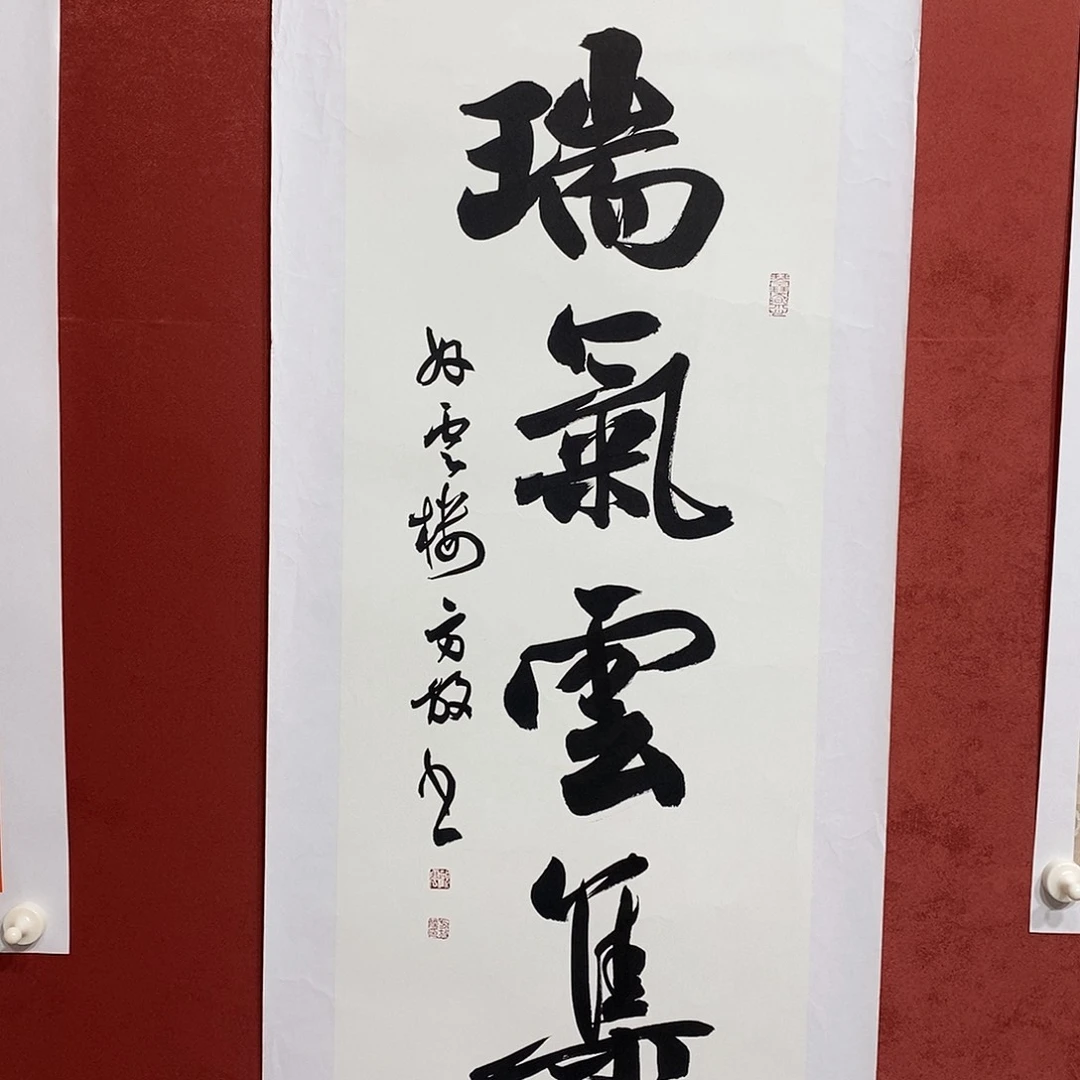 瑞氣雲集
好雲楼方放书